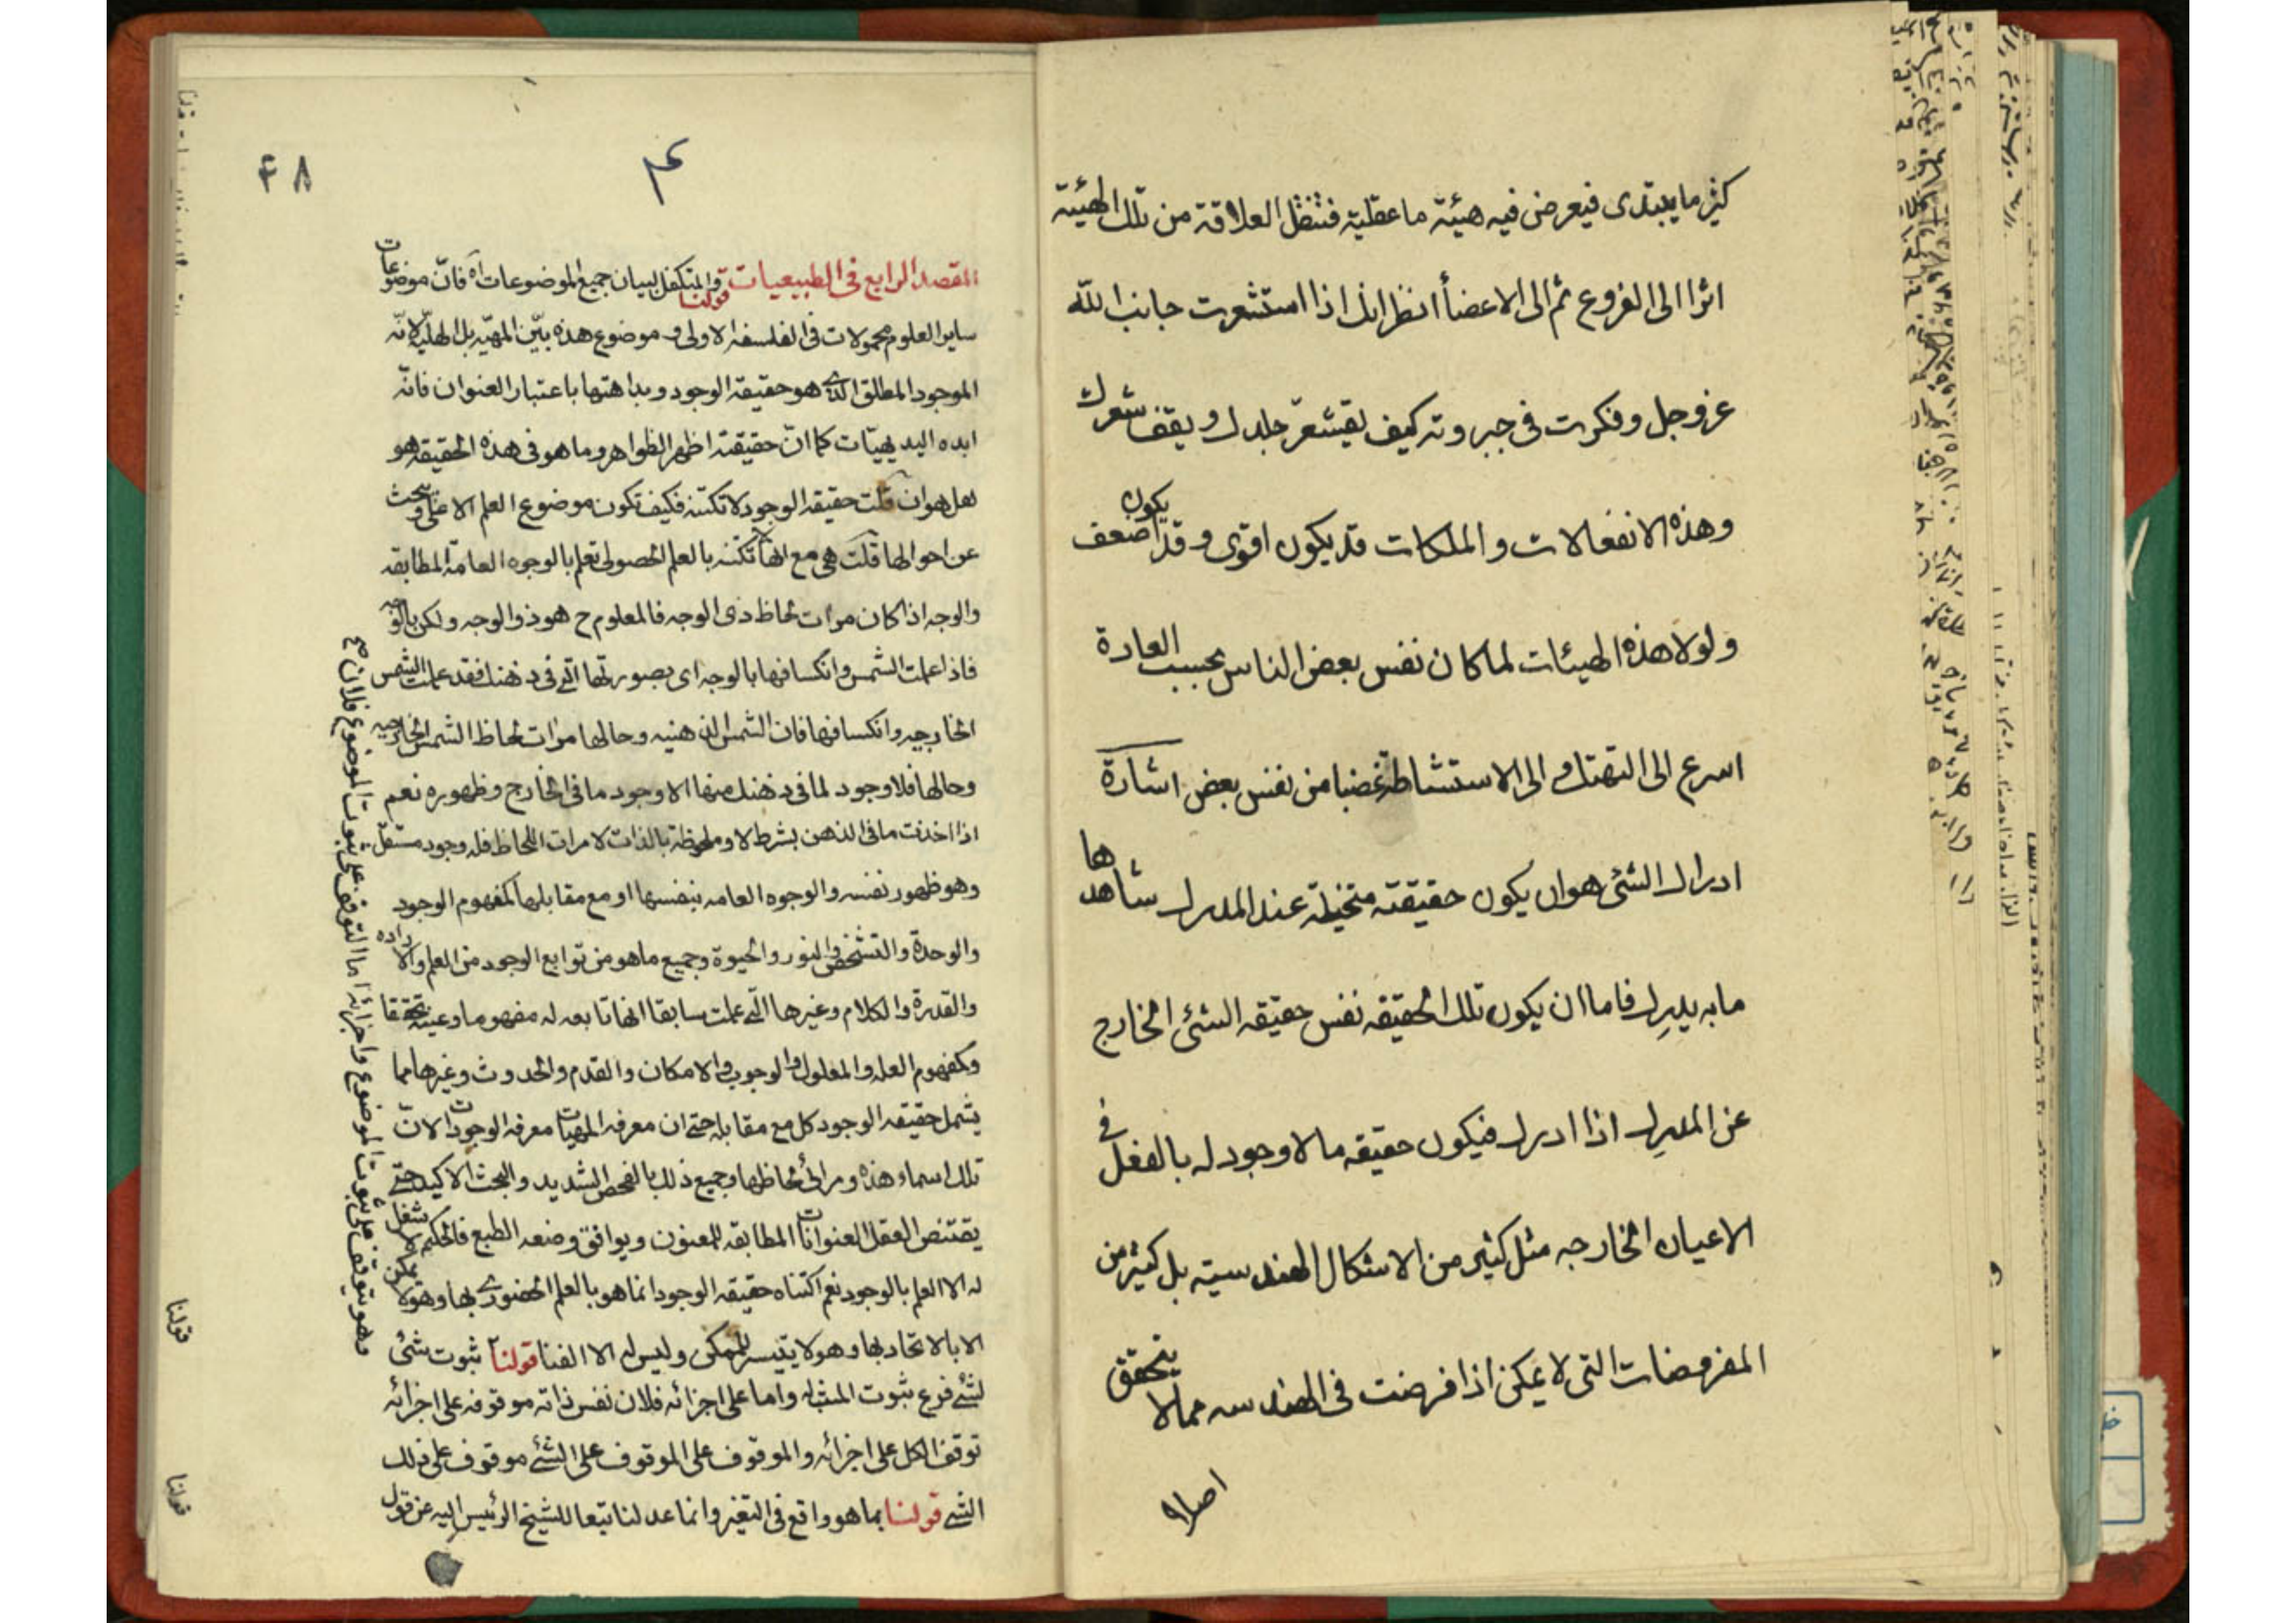 كثير ما يبتدى فيعرض فيه هيئة ما عقلية فتنقل العلاقة من تلك الهيئة
اثرا الى الفروع ثم الى الاعضأ انظر انك اذا استشعرت جانب الله
عز و جل و فكرت فى جبروته كيف يقشعرّ جلدك و يقف شعرك
و هذه الانفعالات و الملكات قد يكون اقوى و قد يكون اضعف
و لولا هذه الهيئات لما كان نفس بعض الناس بحسب العادة
اسرع الى التهتك و الى الاستشاطة غضبا من نفس بعض اشارة
ادراك الشئ هو ان يكون حقيقته متخيلة عند المدرك شاهدها
ما به يدرك فاما ان يكون تلك الحقيقه نفس حقيقه الشئ الخارج
عن المدرك اذا ادرك فيكون حقيقه ما لا وجود له بالفعل فى
الاعيان الخارجه مثل كثير من الاشكال الهندسيته بل كثير من
المفروضات التى لا يمكن اذا فرضت فى الهندسه مما لا يتحقق
اصلا
۴۸
المقصد الرابع فى الطبيعيات قولنا و المتكفل لبيان جميع الموضوعات آه فانّ موضوعات
ساير العلوم محمولات فى الفلسفه الاولى و موضوع هذه بيّن المهيّه بل الهليّه لانّه
الموجود المطلق الذى هو حقيقه الوجود و بداهتها باعتبار العنوان فانّه
ابده البديهيّات كما انّ حقيقته اظهر الظواهر و ما هو فى هذه الحقيقه هو
هل هو ان قلت حقيقه الوجود لا تكتنه فكيف تكون موضوع العلم الاعلى و يبحث
عن احوالها قلت هى مع انها لا تكتنه بالعلم الحصولى تعلم بالوجوه العامة المطابقه
و الوجه اذا كان مرات لحاظ ذى الوجه فالمعلوم ح هو ذو الوجه و لكن بالوجه
فاذا علمت الشمس و انكسافها بالوجه اى بصورتها التى فى ذهنك فقد علمت الشمس
الخارجيه و انكسافها فان الشمس الذهنيه و حالها مرات لحاظ الشمس الخارجيه
و حالها فلا وجود لما فى ذهنك منها الا وجود ما فى الخارج و ظهوره نعم
اذا اخذت ما فى الذهن بشرط لا و ملحوظة بالذات لا مرات اللحاظ فله وجود مستقل
و هو ظهور نفسه و الوجوه العامه بنفسها او مع مقابلها كمفهوم الوجود
و الوحدة و التشخص و النور و الحيوة و جميع ما هو من توابع الوجود من العلم و الاراده
و القدرة و الكلام و غيرها التى علمت سابقا انها تابعه له مفهوما و عينه تحققا
و كمفهوم العله و المعلول و الوجوب و الامكان و القدم و الحدوث و غيرها مما
يشمل حقيقه الوجود كل مع مقابله حتى ان معرفه المهيات معرفه الوجودات لانّ
تلك اسماء هذه و مرائى لحاظها و جميع ذلك بالفحص الشديد و البحث الاكيد حتى
يقتنص العقل العنوانات المطابقه للمعنون و يوافق وضعه الطبع فالحكيم لا شغل
له الا العلم بالوجود نعم اكتناه حقيقه الوجود انما هو بالعلم الحضورى بها و هو لا يمكن
الا بالاتحاد بها و هو لا يتيسر للممكن و ليس له الا الفنا قولنا ثبوت شئ
لشئ فرع ثبوت المثبت له و اما على اجزائه فلان نفس ذاته موقوفه على اجزائه
توقف الكل على اجزائه و الموقوف على الموقوف على الشئ موقوف على ذلك
الشئ قولنا بما هو واقع فى التغير و انما عدلنا تبعا للشيخ الرئيس اليه عن قول
اما التوقف على ثبوت الموضوع فلان
فهو يتوقف على ثبوت الموضوع و اجزائه
قولنا
قولنا